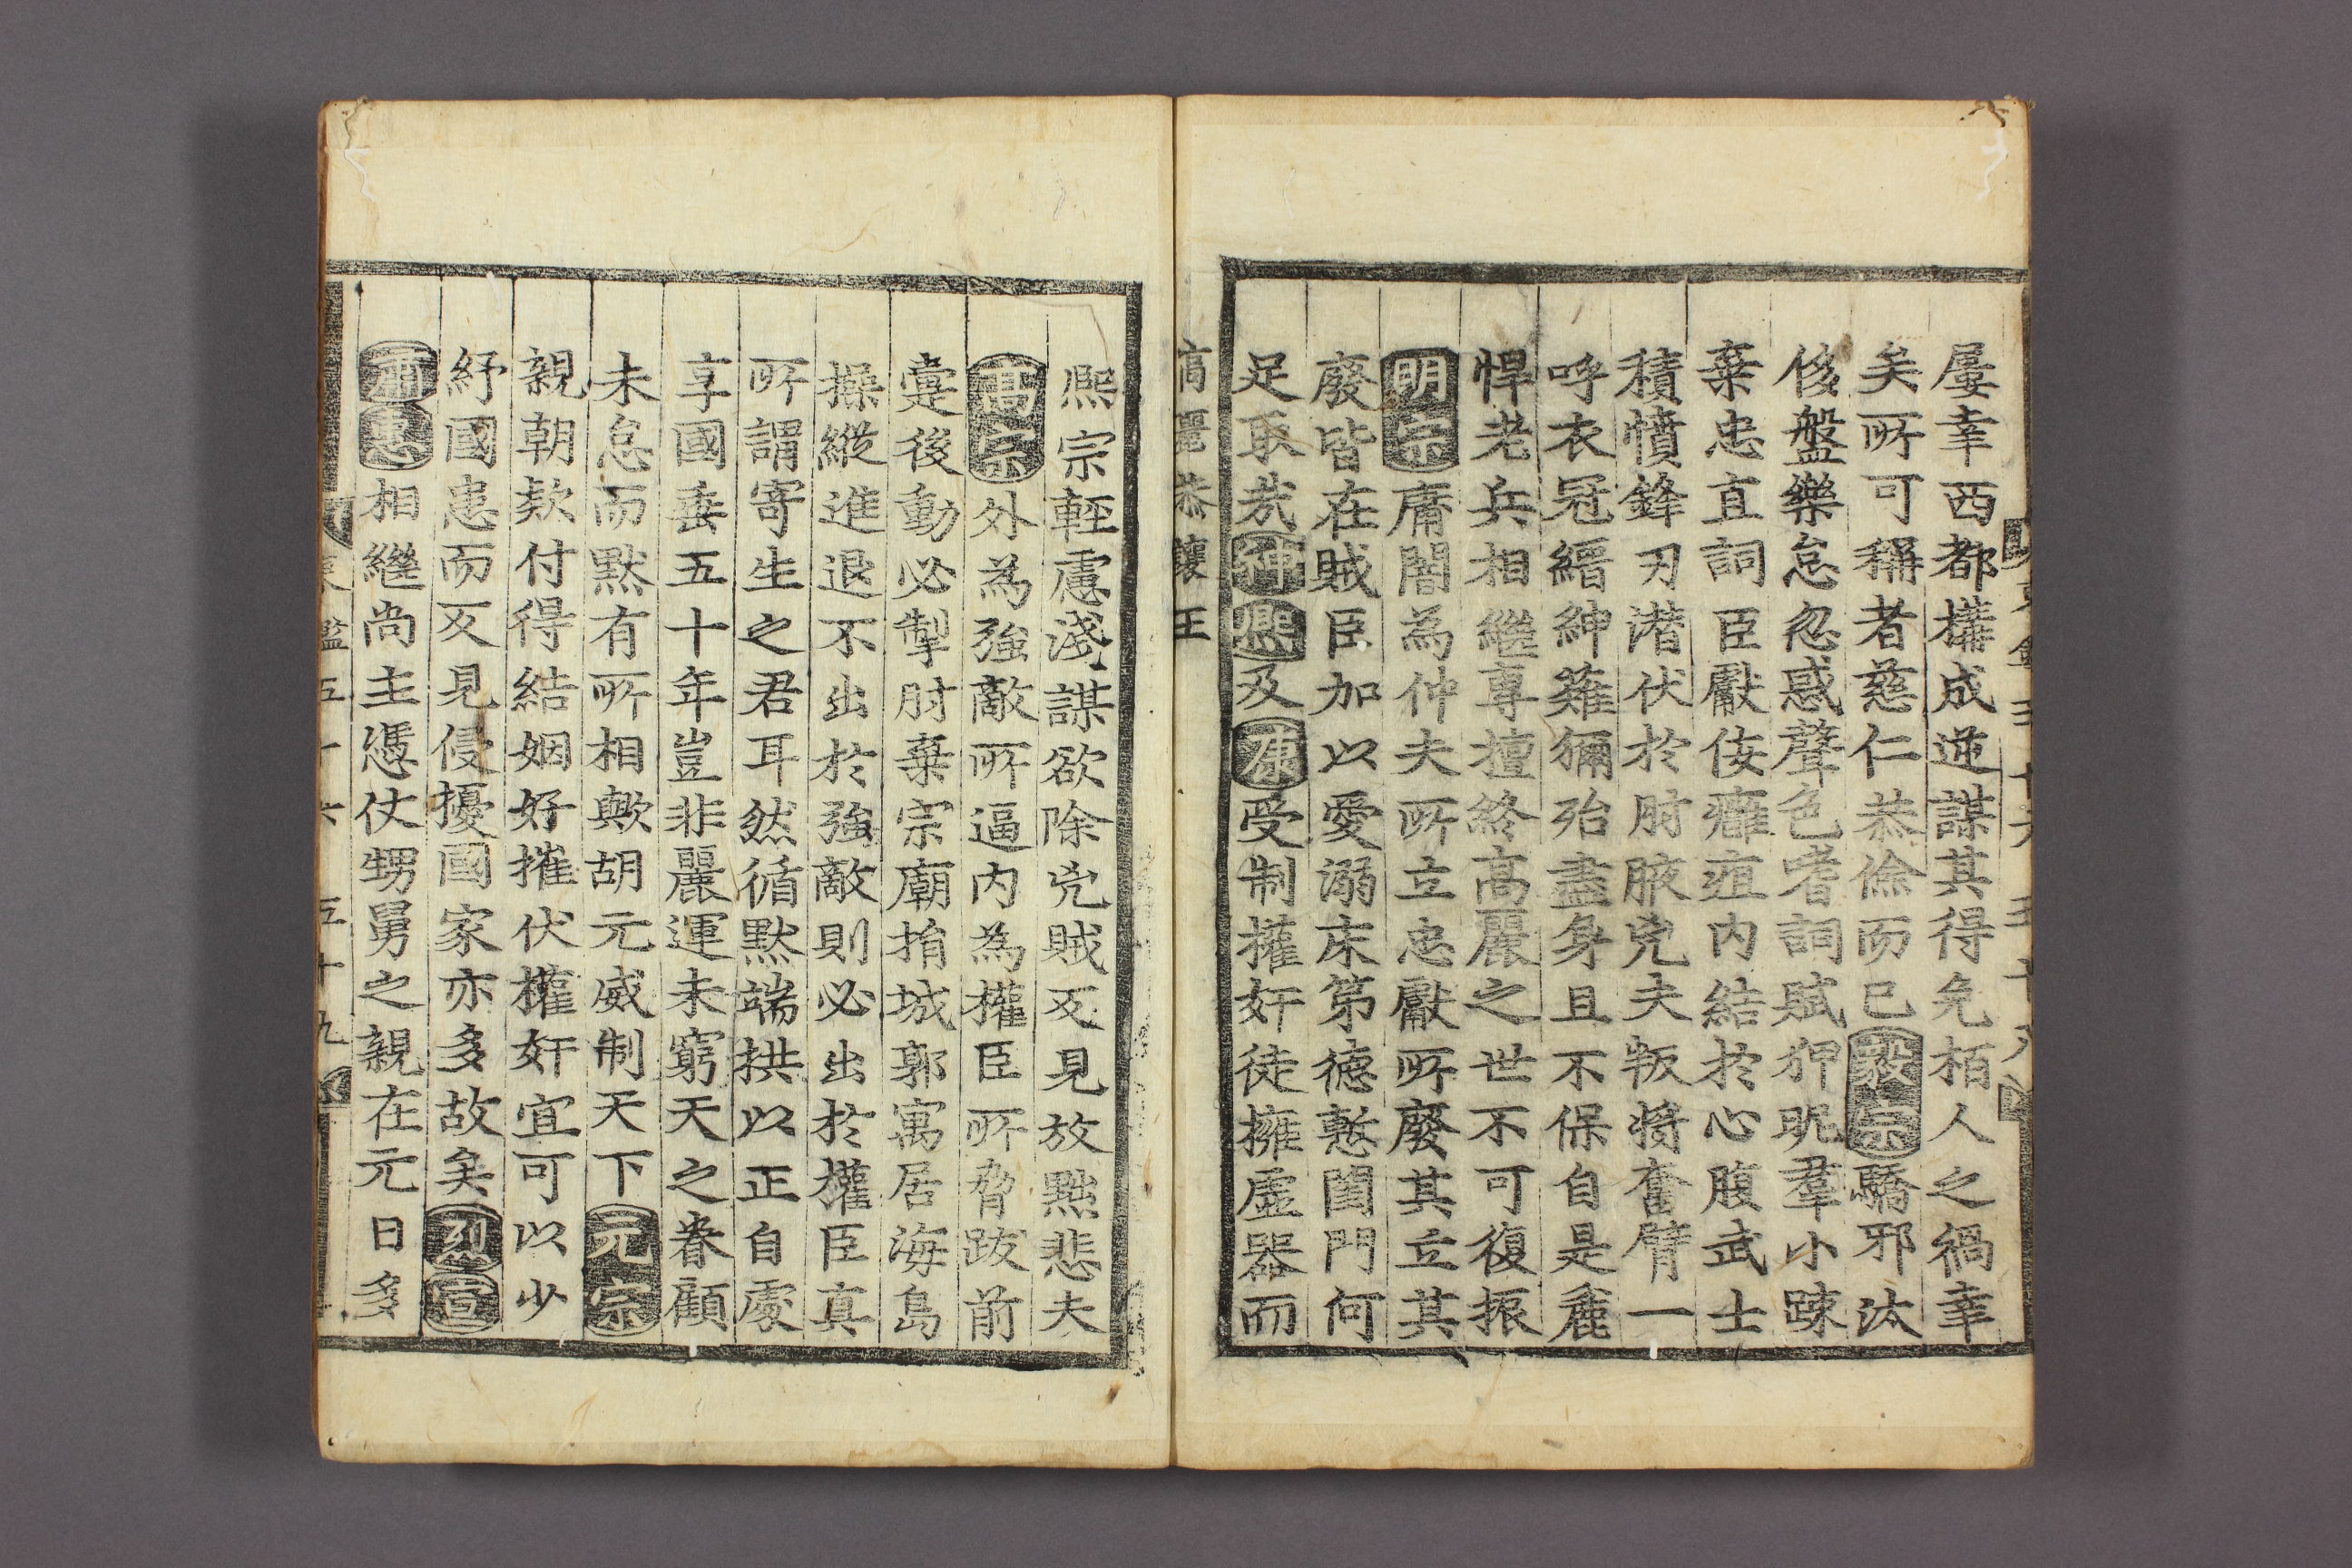 屢幸西都構成逆謀其得免栢人之禍幸
矣所可稱者慈仁恭儉而已毅宗驕邪汰
侈盤樂怠忽惑聲色嗜詞賦狎昵羣小踈
棄忠直詞臣獻佞癰疽內結於心腹武士
積憤鋒刃潛伏於肘腋兇夫叛將奮臂一
呼衣冠縉紳薙獮殆盡身且不保自是麁
悍老兵相繼專擅終高麗之世不可復振
明宗庸闇為仲夫所立忠獻所廢其立其
廢皆在賊臣加以愛溺床第德慙閨門何
足取㢤神熙及康受制權奸徒擁虛器而
高麗恭讓王
熙宗輕慮淺謀欲除兇賊反見放黜悲夫
高宗外為強敵所逼內為權臣所脅跋前
疐後動必掣肘棄宗廟捐城郭寓居海島
操縱進退不出於強敵則必出於權臣真
所謂寄生之君耳然循默端拱以正自處
享國垂五十年豈非麗運未窮天之眷顧
未怠而默有所相歟胡元威制天下元宗
親朝欵付得結姻好摧伏權奸宜可以少
紓國患而反見侵擾國家亦多故矣烈宣
肅惠相繼尚主憑仗甥舅之親在元日多
監五十六 五十九